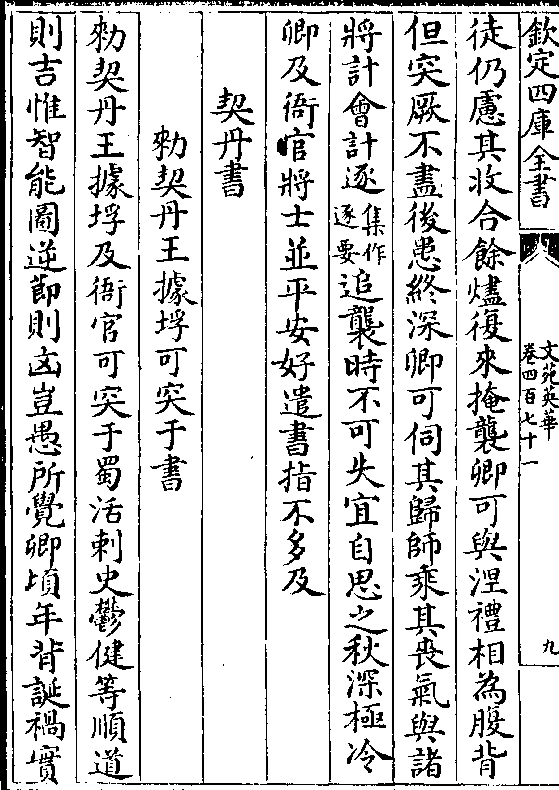 欽定四庫全書
文苑英華
卷四百七十一
九
徒仍慮其收合餘燼復來掩襲卿可與涅禮相為腹背
但突厥不盡後患終深卿可伺其歸師乘其喪氣與諸
將計會計逐集作逐要追襲時不可失宜自思之秋深極冷
卿及衙官將士並平安好遣書指不多及
契丹書
勅契丹王據埒可突于書
勅契丹王據埒及衙官可突于蜀活刺史鬱健等順道
則吉惟智能圖逆節則凶豈愚所覺卿頃年背誕禍實